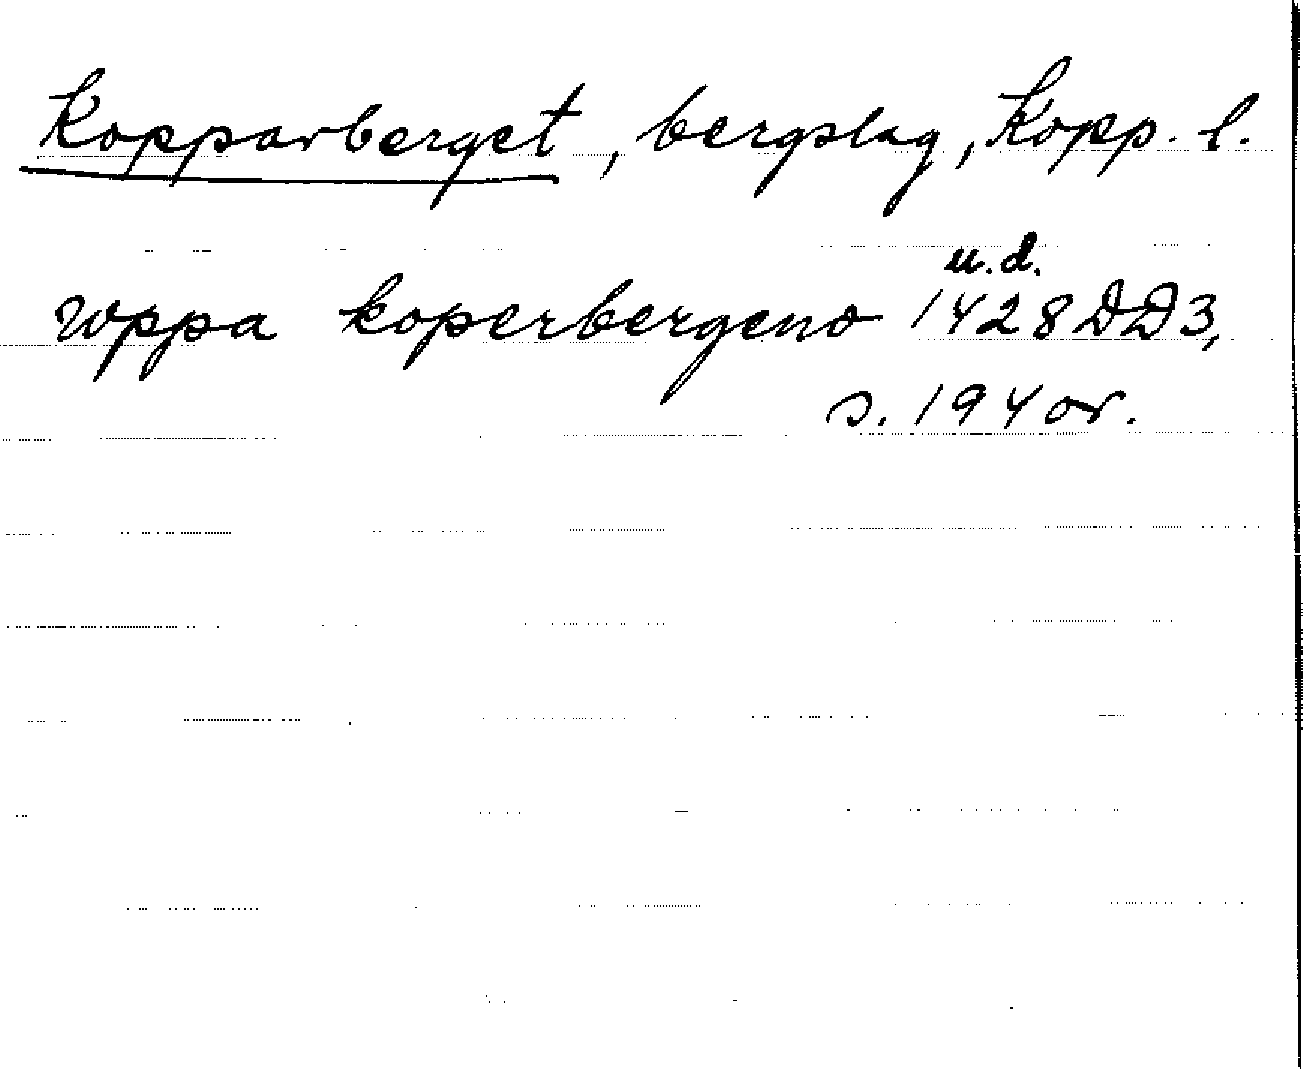 Kopparberget, bergslag, Kopp. l.
u.d.
wppa koperbergeno 1428 DD3,
s. 194 or.